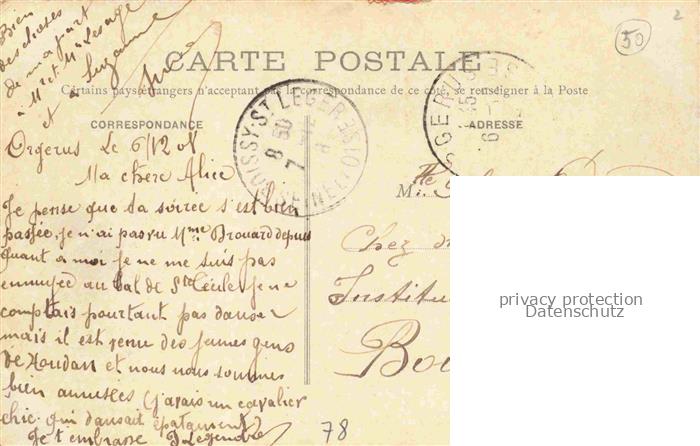 Bien
des choses
de ma part
a Mr et Me Lesage
et a Suzanne
50
2
CARTE POSTALE
Certains pays étrangers n'acceptant pas la correspondance de ce coté, se renseigner à la Poste
CORRESPONDANCE
ADRESSE
BOISSY-ST LEGER
(SEINE-ET-OISE)
8 50
7
8
ORGERUS
Orgerus Le 6/12 08
Ma chere Alice
Je pense que ta soirée s'est bien
passée, je n'ai pas vu Mme Brouard depuis
Quant a moi je ne me suis pas
ennuyée au bal de Ste Cécile je ne
comptais pourtant pas danser
mais il est venu des jeunes gens
de Houdan et nous nous sommes
bien amusées (j'avais un cavalier
chic. qui dansait épatamment
Je t'embrasse G Legendre
Mlle
Chez
Institu
Boi
78
privacy protection
Datenschutz